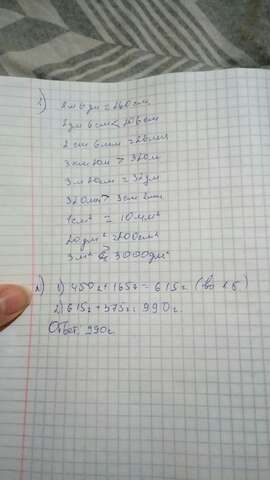 1) 2м 6дм = 260см
2дм 6см < 206см
2см 6мм = 26мм
3км 20м > 320м
3м 20см = 32дм
320мм > 3см 2мм
1см² = 10мм²
20дм² = 200см²
3м² < 3000дм²
2) 1) 450г + 165г = 615г (во 2 б)
2) 615г + 375г = 990г.
Ответ: 990г.